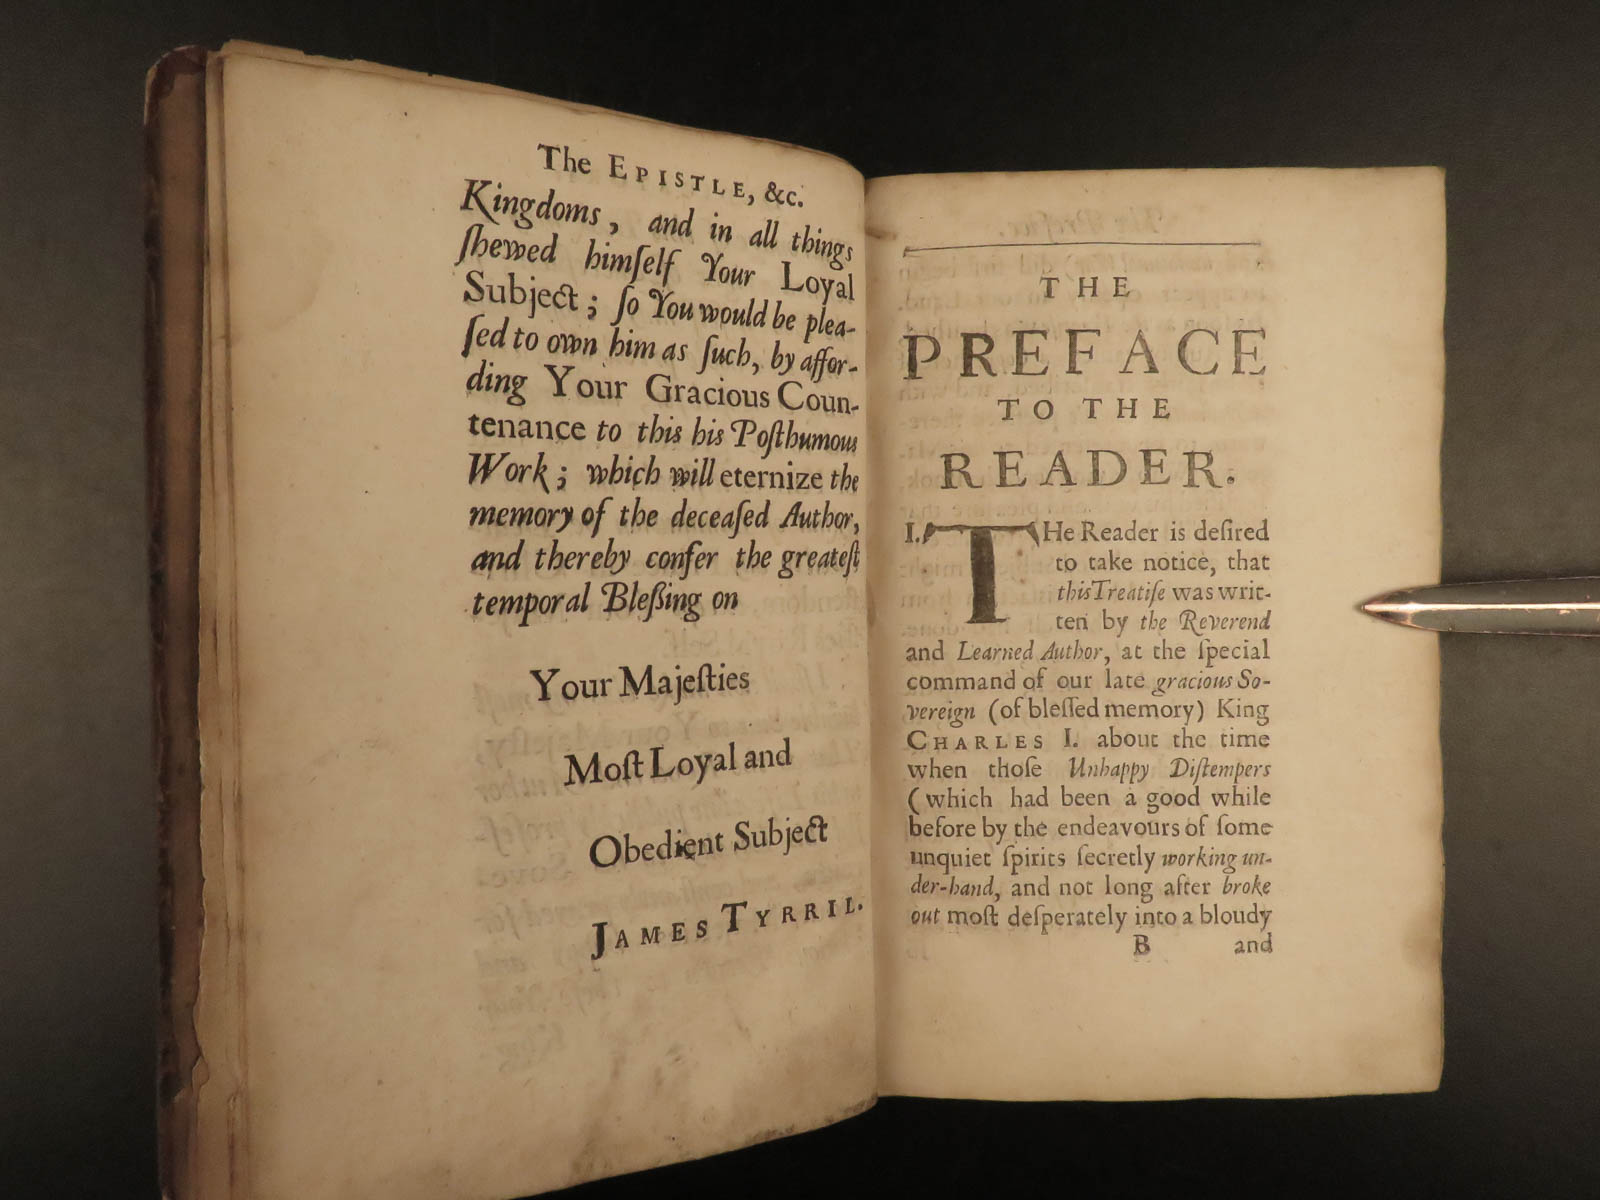 The EPISTLE, &c.
Kingdoms, and in all things
ſhewed himſelf Your Loyal
Subject; ſo You would be plea-
ſed to own him as ſuch, by affor-
ding Your Gracious Coun-
tenance to this his Poſthumous
Work; which will eternize the
memory of the deceaſed Author,
and thereby confer the greateſt
temporal Bleſſing on
Your Majeſties
Moſt Loyal and
Obedient Subject
JAMES TYRRIL.
THE
PREFACE
TO THE
READER.
I. THe Reader is deſired
to take notice, that
this Treatiſe was writ-
ten by the Reverend
and Learned Author, at the ſpecial
command of our late gracious So-
vereign (of bleſſed memory) King
CHARLES I. about the time
when thoſe Unhappy Diſtempers
(which had been a good while
before by the endeavours of ſome
unquiet ſpirits ſecretly working un-
der-hand, and not long after broke
out moſt deſperately into a bloudy
B and